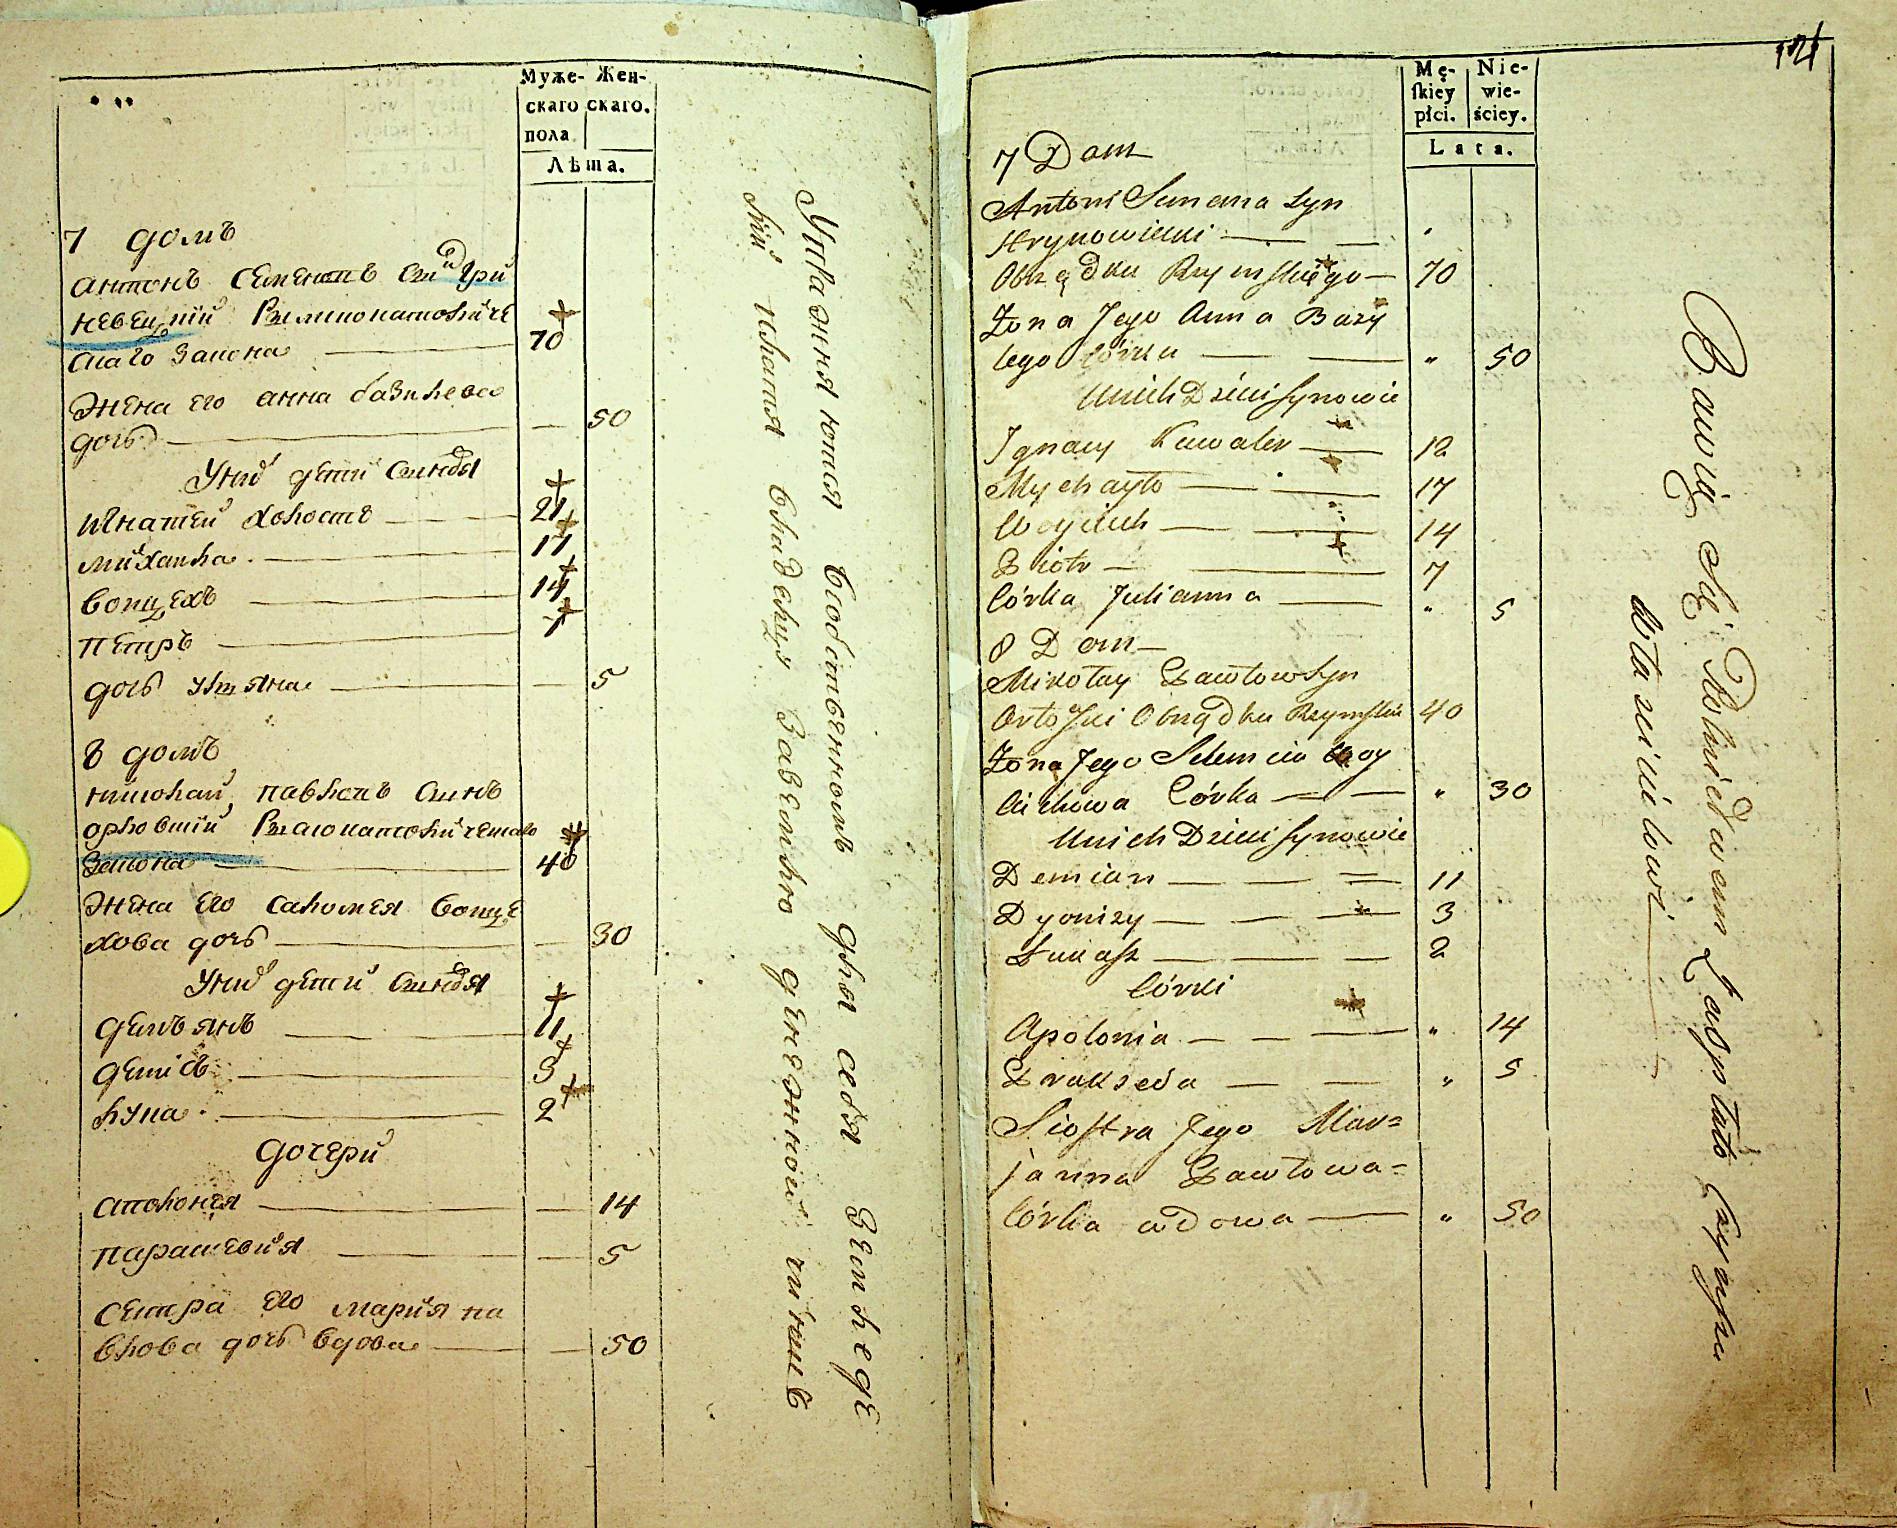 Муже-
скаго
пола.
Жен-
скаго.
Лѣта.
7 домъ
антонъ Семеновъ Синъ
Римшокатоличе
скаго Закона — 70
Жена его анна базилева
дочь — 50
У них дети Синовя
игнатей холостъ — 21
михайла — 17
войцехъ — 14
петръ — 7
дочь уляна — 5
8 домъ
николай павловъ Синъ
орловский Римокатолическаго
Закона — 40
Жена его саломея войце
хова дочь — 30
У них дети Синовя
демъянъ — 11
денисъ — 3
лука — 2
дочери
аполония — 14
парасковия — 5
сестра его мария па
влова дочь вдова — 50
Упражняются собственномъ для себя земледе
лии
владельцу
денежной чиншъ
121
Mę-
ſkiey
płci.
Nie-
wie-
ściey.
Lata.
7 Dom
Antoni Semena Syn
Hrynowiecki —
Obrządku Rzymſkiego — 70
Żona Jego Anna Bazy
lego Córka — " 50
U nich Dzieci Synowie
Ignacy Kawaler — 12
Mychayło — 17
Woyciech — 14
Piotr — 7
Córka Julianna — " 5
8 Dom —
Mikołay Pawłow Syn
Orłoſki Obrządku Rzymſkie 40
Żona Jego Selemcia Woy
ciechowa Córka — " 30
U nich Dzieci Synowie
Demian — 11
Dyonizy — 3
Łukaſz — 2
Córki
Apolonia — " 14
Prakseda — " 5
Sioſtra Jego Mar=
janna Pawłowa=
Córka wdowa — " 50
Bawią się Rolnictwem Zaś płacą Czynſzu
Właścicielowi —